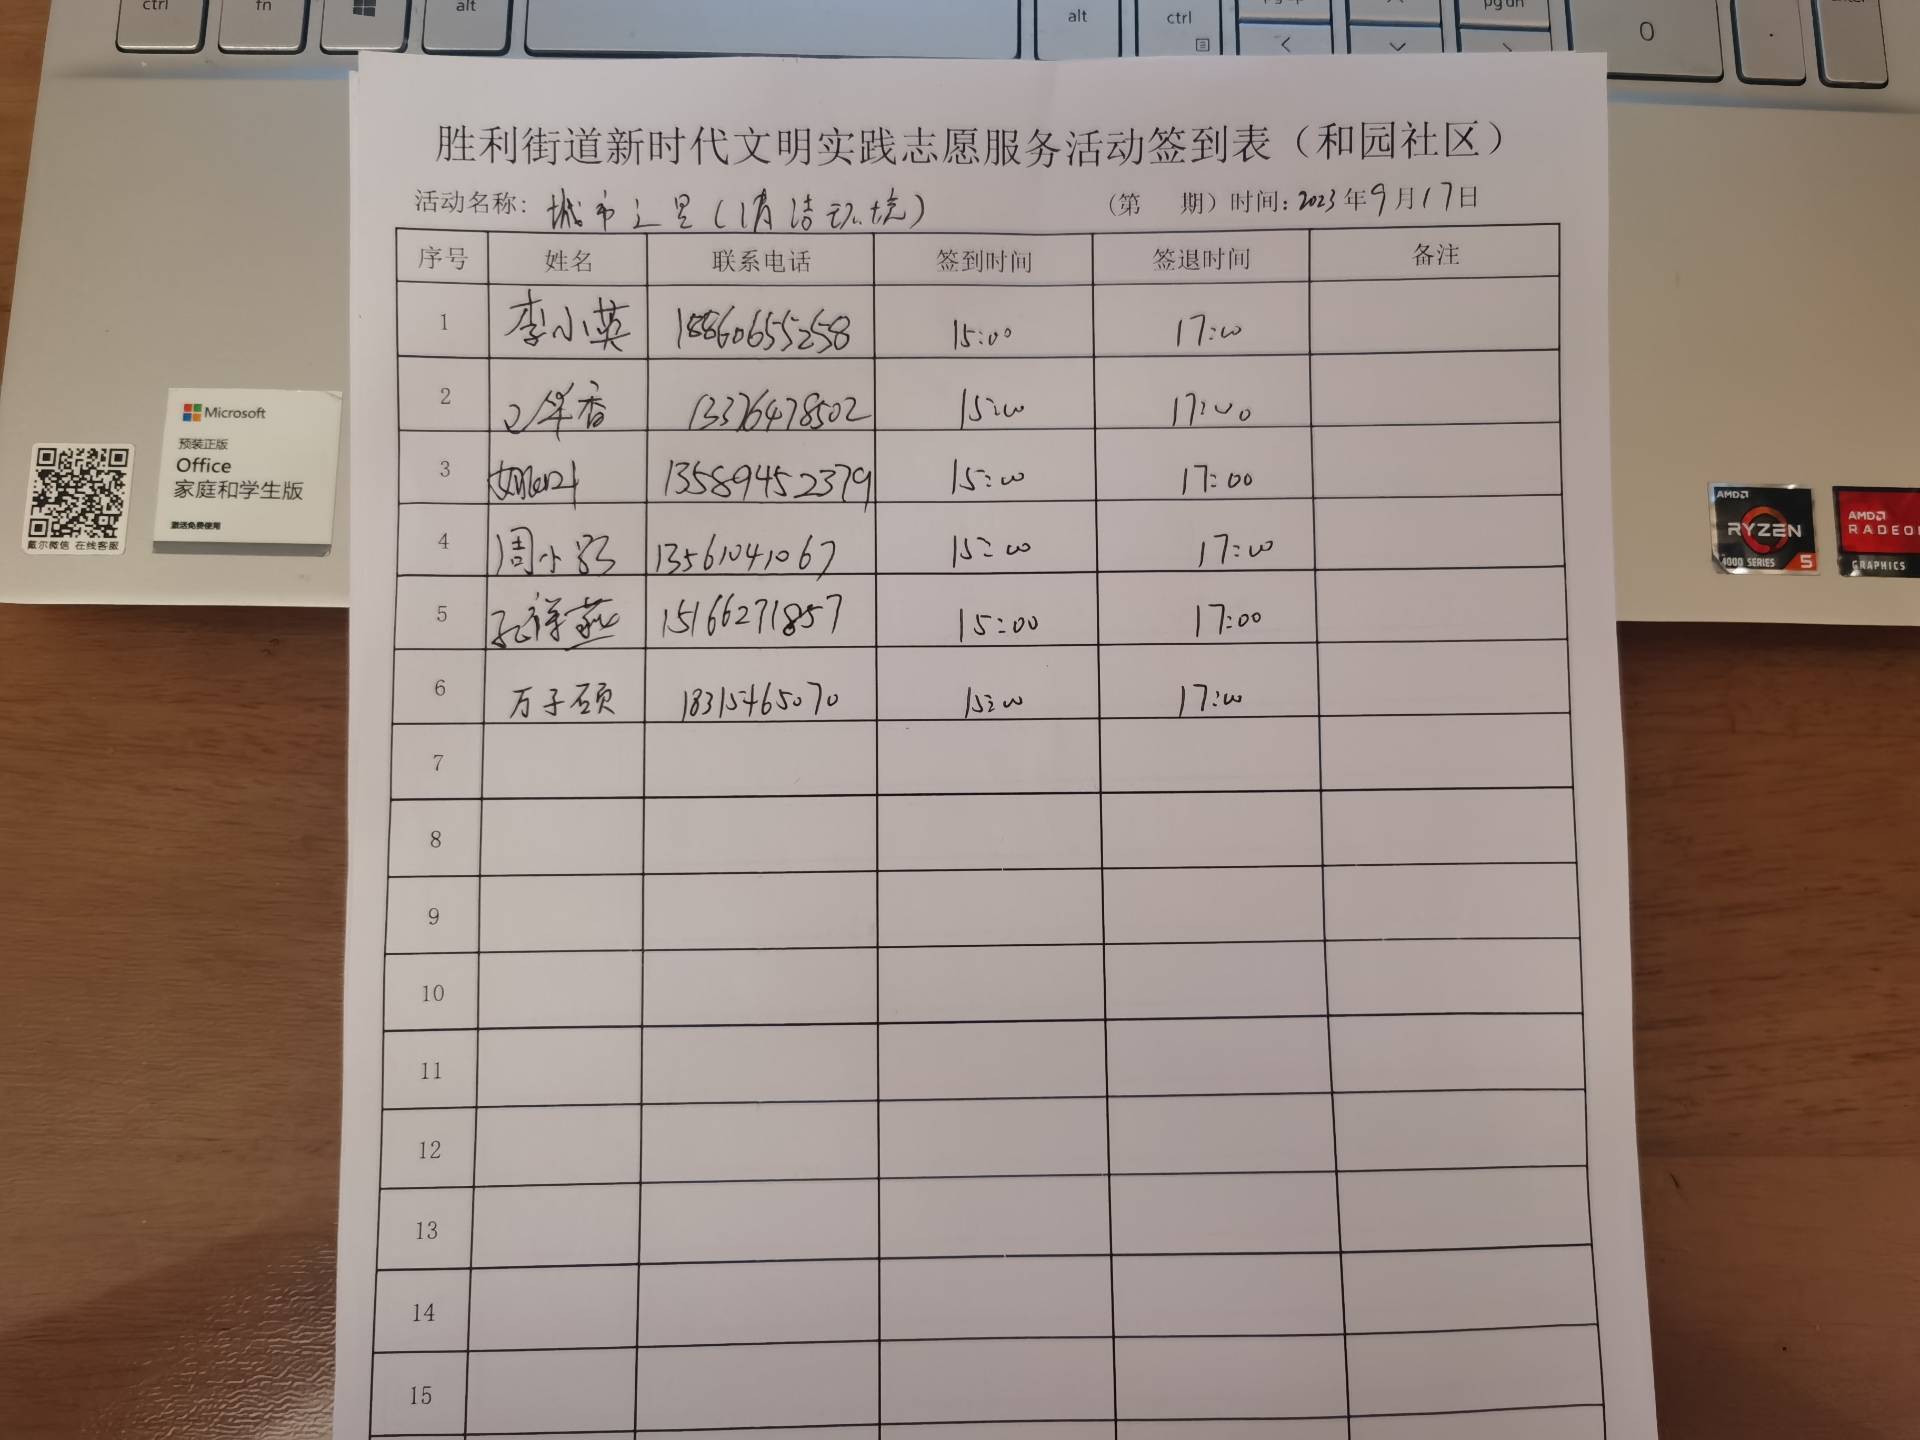 ctrl fn alt alt ctrl pg dn 0 .
胜利街道新时代文明实践志愿服务活动签到表（和园社区）
活动名称：城市之星（清洁环境） （第 期）时间：2023年9月17日
序号 姓名 联系电话 签到时间 签退时间 备注
1 李小英 18860655258 15:00 17:00
2 香 13376478502 15:00 17:00
3 13589452379 15:00 17:00
4 周小 13561041067 15:00 17:00
5 孔祥燕 15166271857 15:00 17:00
6 万子硕 18315465070 15:00 17:00
7
8
9
10
11
12
13
14
15
Microsoft
预装正版
Office
家庭和学生版
激活免费使用
戴尔微信 在线客服
AMD
RYZEN
4000 SERIES 5
AMD
RADEO
GRAPHICS